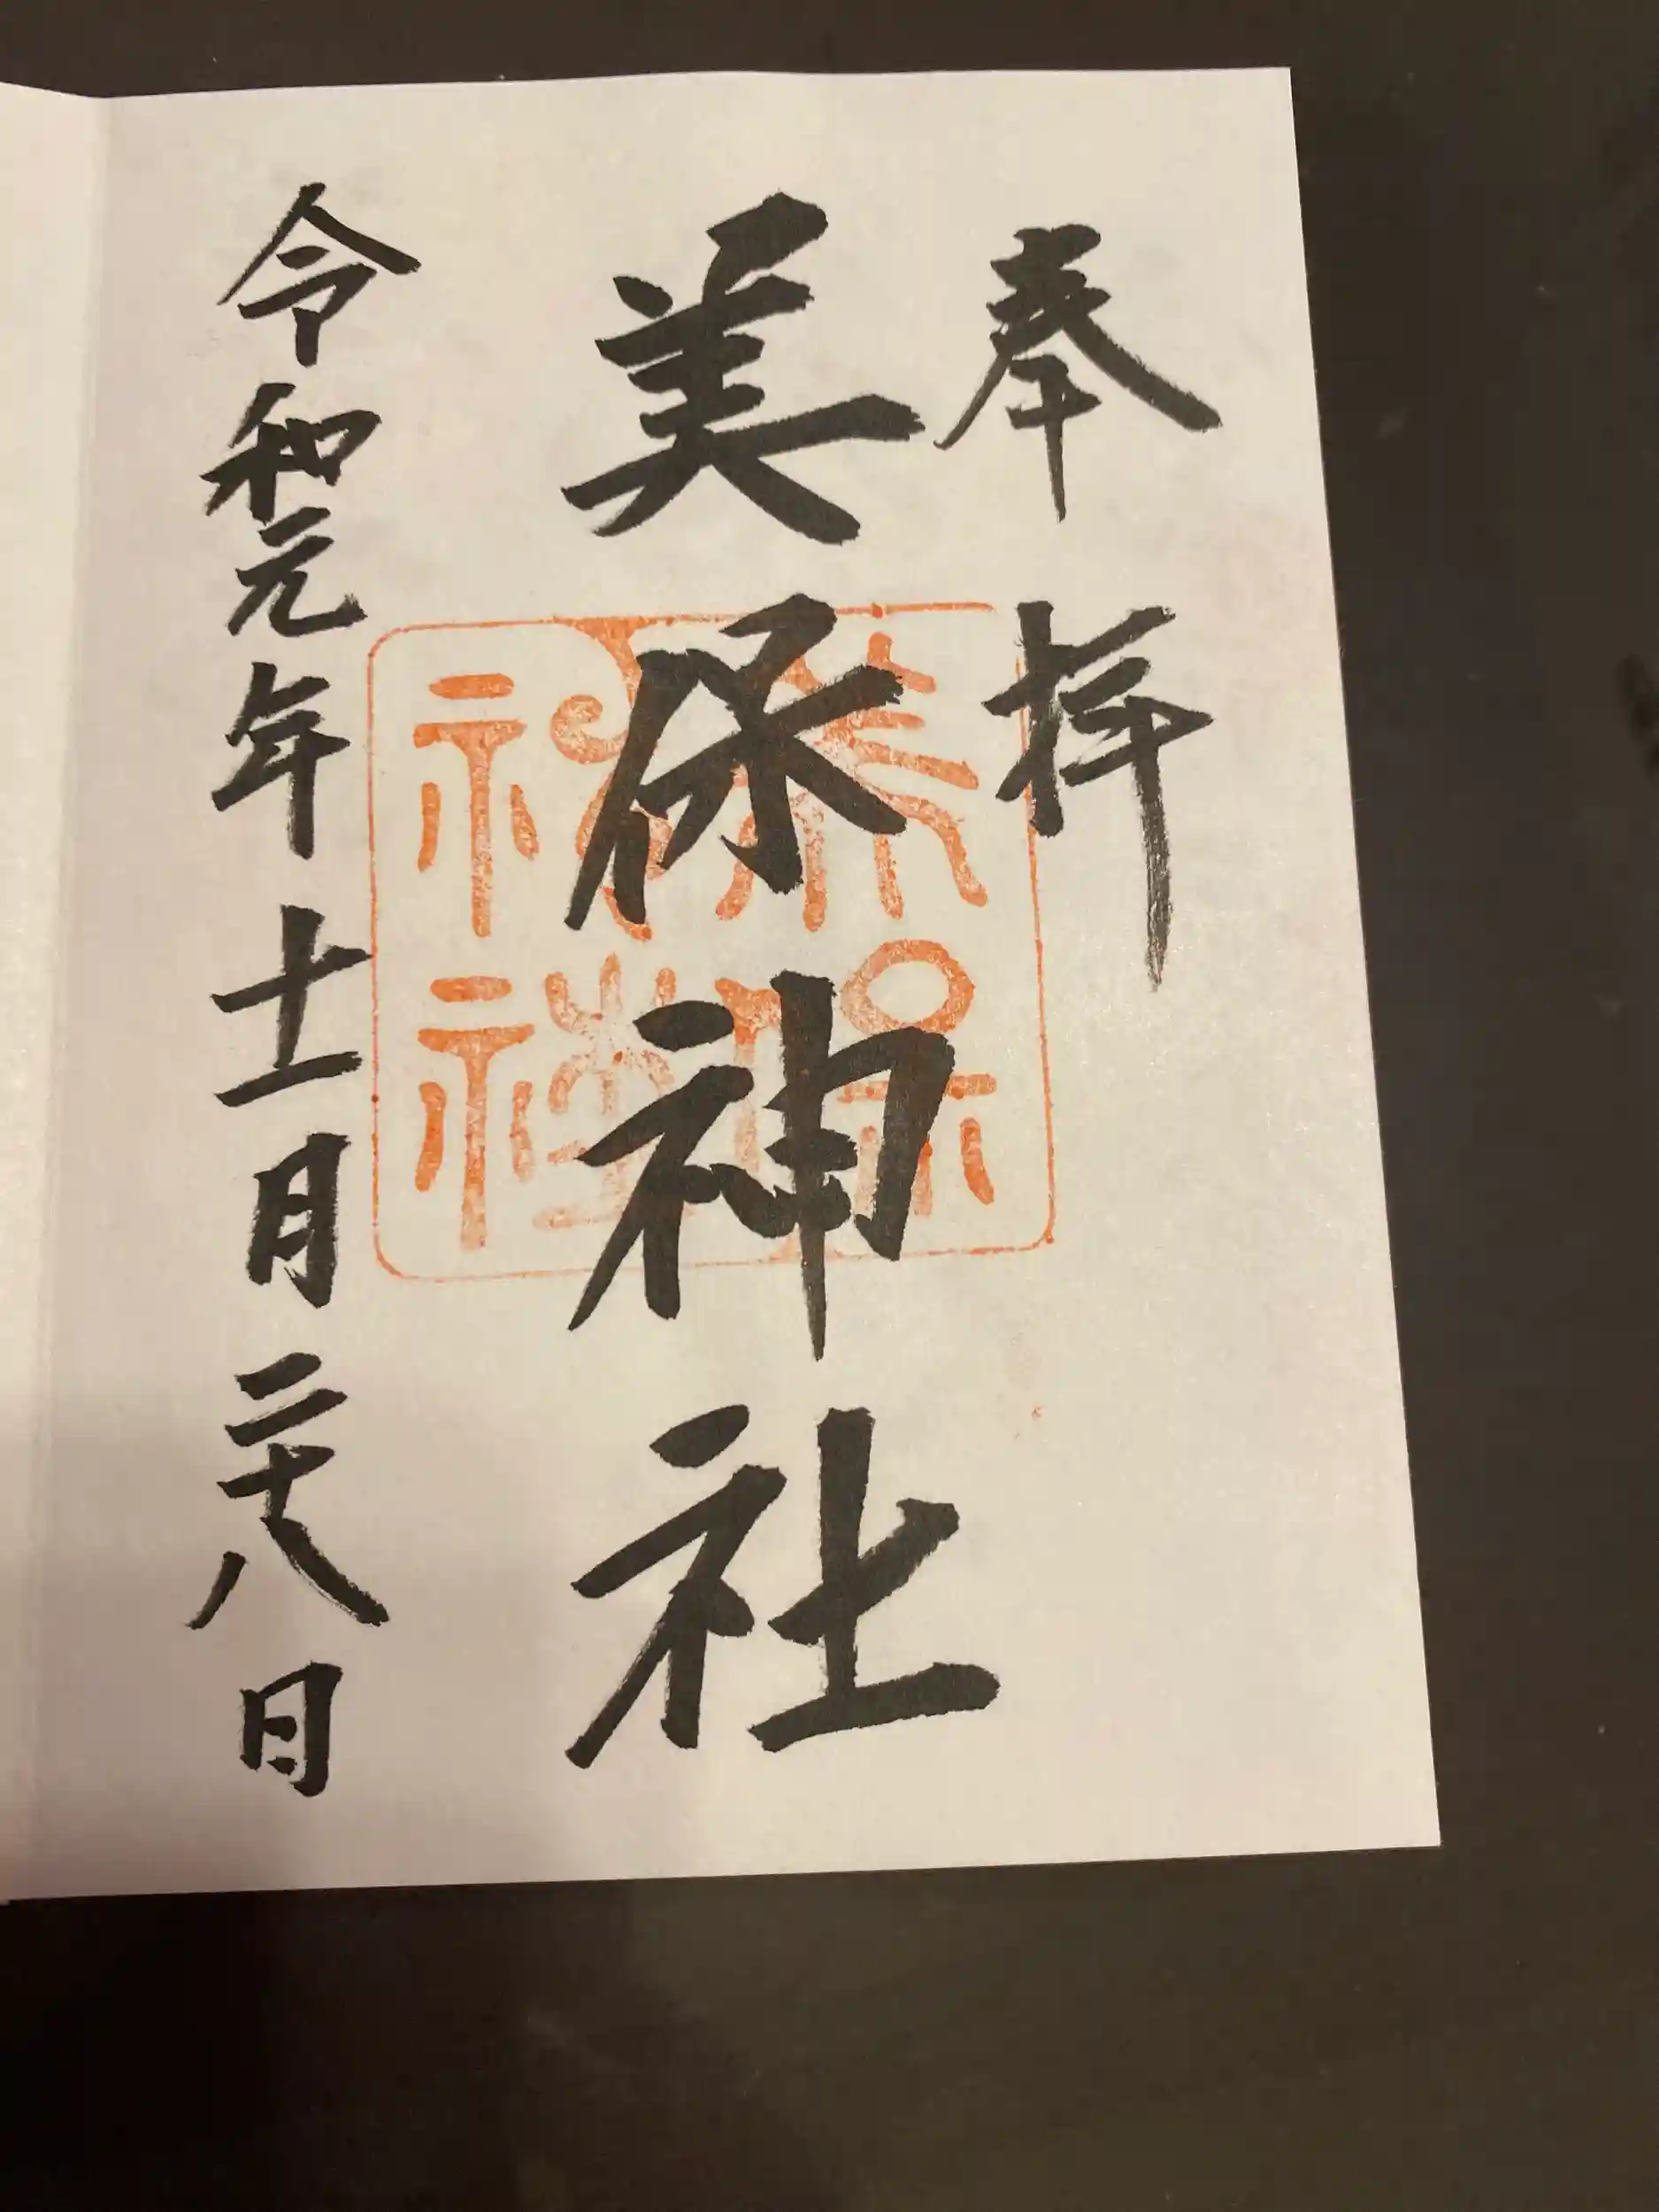 奉拝
美保神社
令和元年十一月二十八日
美保
神社